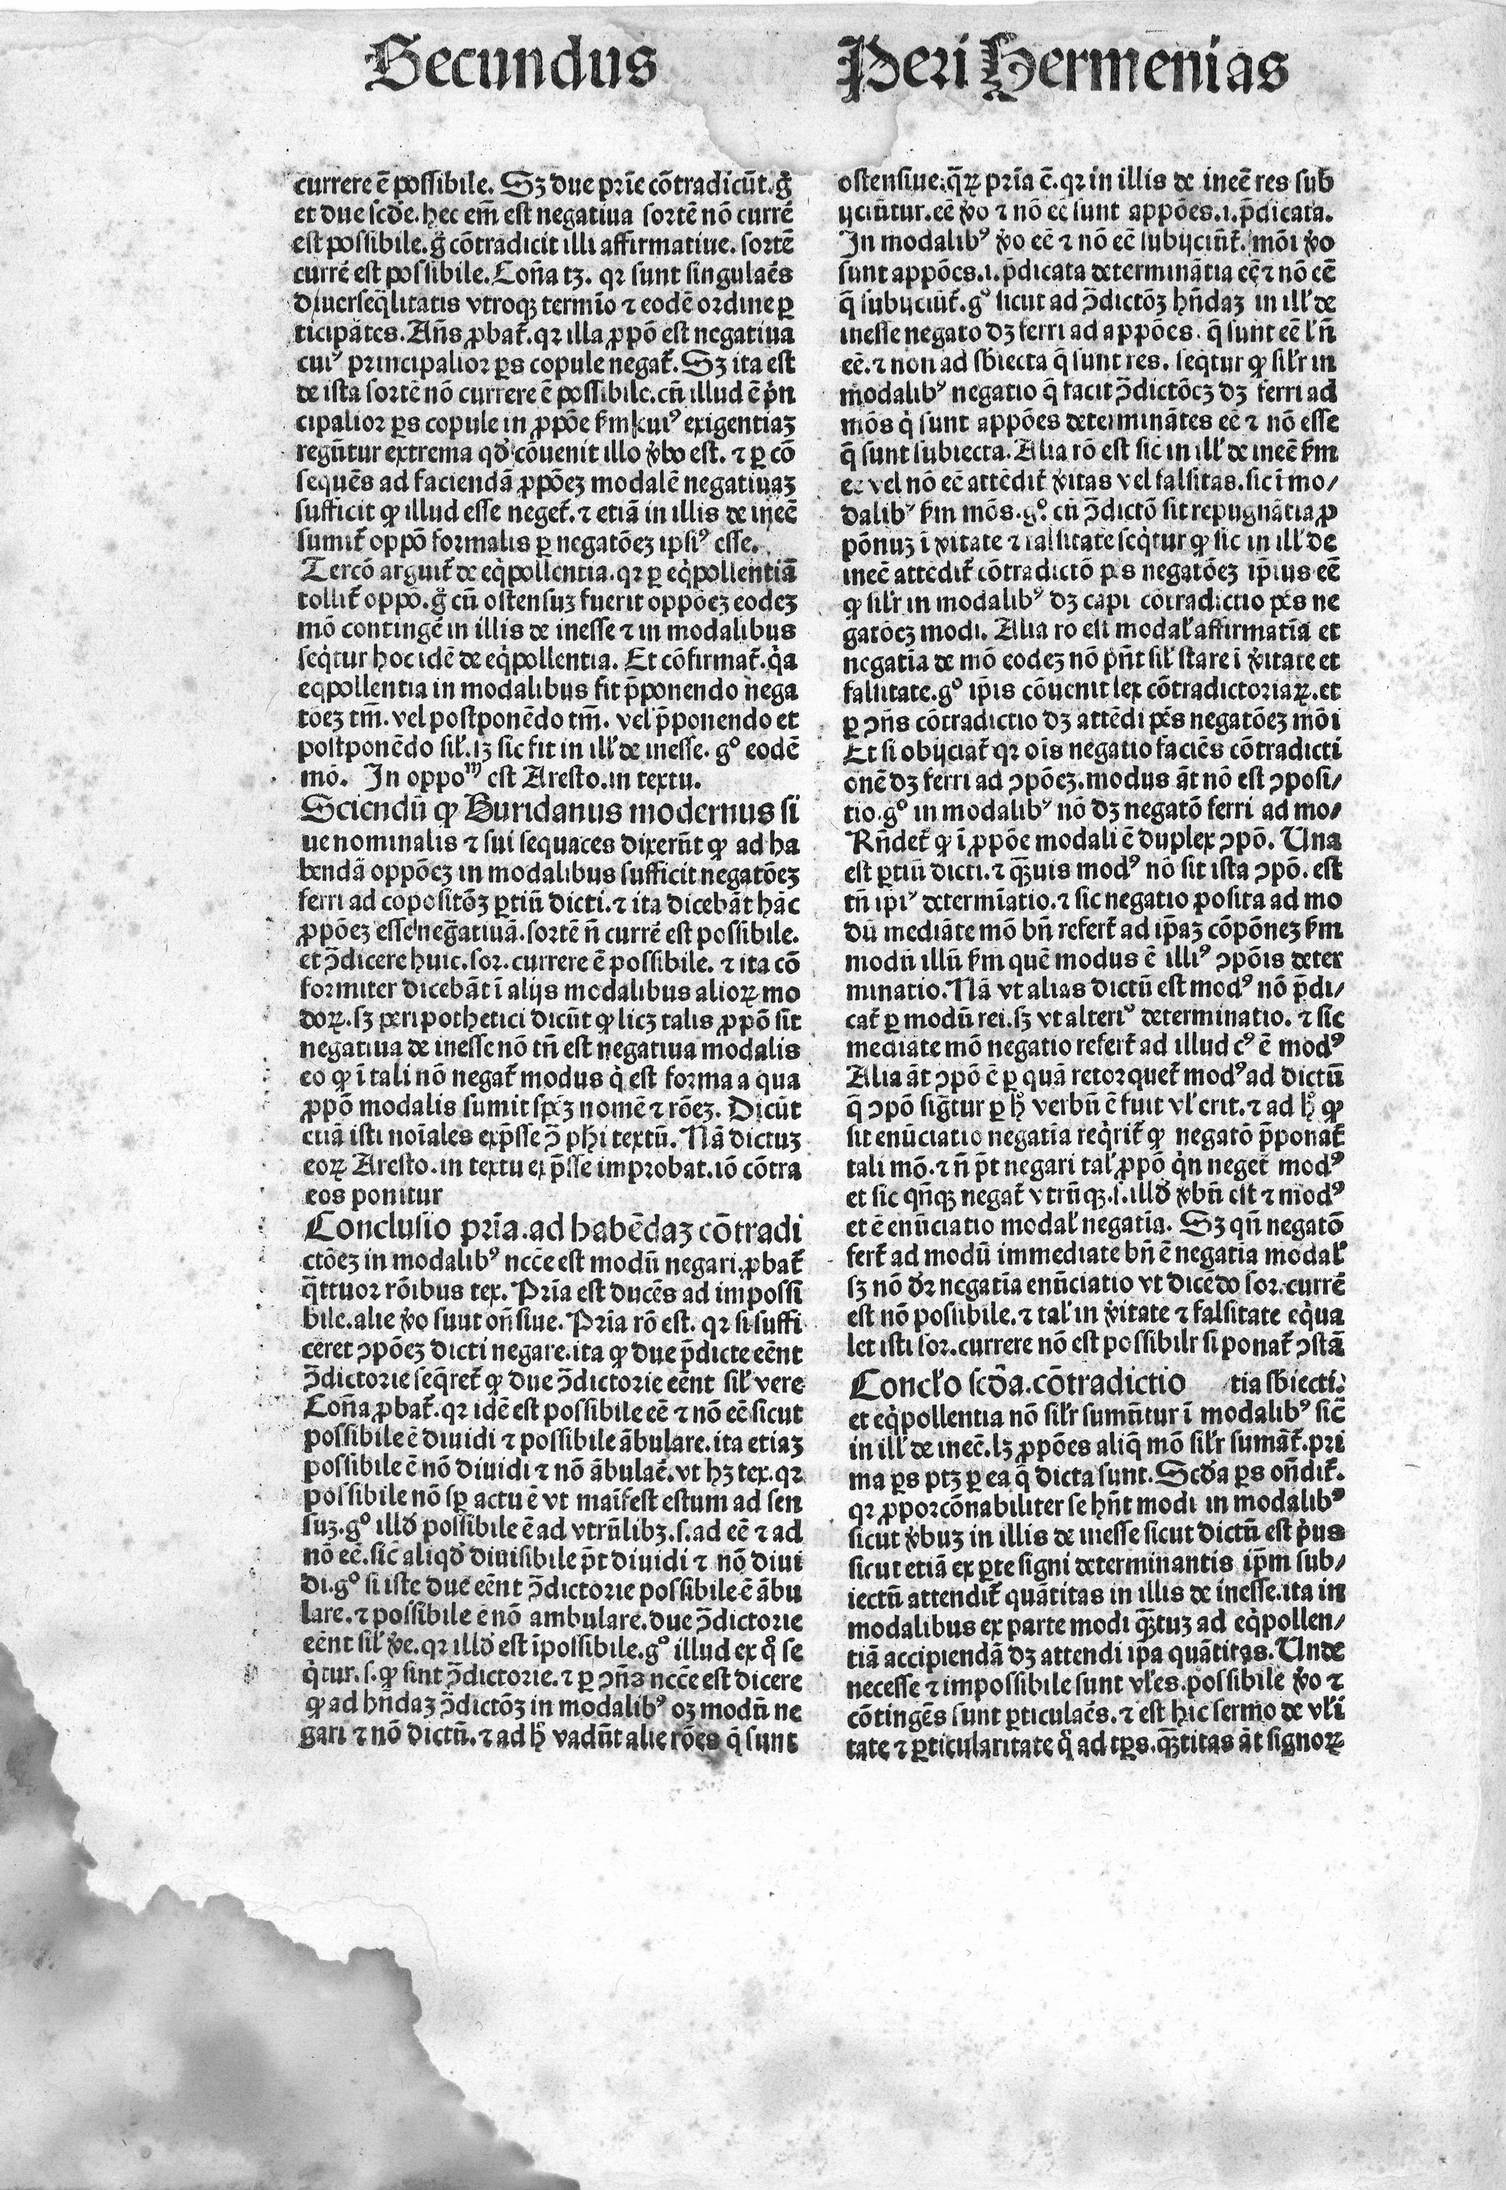 Secundus
Peri Hermenias
currere ē possibile. Sꝫ due prīe cōtradicūt.gͦ
et due scđe.hec em̄ est negatiua sortē nō currē
est possibile.gͦ cōtradicit illi affirmatiue.sortē
currē est possibile.Coña tꝫ. qꝛ sunt singulaēs
diuerse q̄litatis vtroqꝫ termīo ⁊ eodē ordine ꝑ
ticipātes.Añs ꝓbat̄.qꝛ illa ꝓpō est negatiua
cuiꝰ principalior ꝑs copule negat̄.Sꝫ ita est
de ista sortē nō currere ē possibile.cū illud ē p̄n
cipalior ꝑs copule in ꝓpōe ẜm cuiꝰ exigentiaꝫ
regūtur extrema qđ cōuenit illo v̄bo est. ⁊ ꝑ cō
sequēs ad faciendā ꝓpōeꝫ modalē negatiuaꝫ
sufficit ꝙ illud esse neget̄.⁊ etiā in illis de ineē
sumit̄ oppō formalis ꝑ negatōeꝫ ipsiꝰ esse.
Tercō arguit̄ de eq̇pollentia.qꝛ ꝑ eq̇pollentiā
tollit̄ oppō.gͦ cū ostensuꝫ fuerit oppōeꝫ eodeꝫ
mō contingē in illis de inesse ⁊ in modalibus
seq̇tur hoc idē de eq̇pollentia. Et cōfirmat̄.q̇a
eqpollentia in modalibus fit p̄ponendo nega
toeꝫ tm̄.vel postponēdo tm̄. vel p̄ponendo et
postponēdo sil̄.ſꝫ sic fit in ill̄ de inesse. gͦ eodē
mō. In oppoᵐ est Aresto.in textu.
Sciendū ꝙ Buridanus modernus si
ue nominalis ⁊ sui sequaces dixerūt ꝙ ad ha
bendā oppōeꝫ in modalibus sufficit negatōeꝫ
ferri ad copositōꝫ ꝑtiū dicti.⁊ ita dicebāt hāc
ꝓpōeꝫ esse negatiuā.sortē ñ currē est possibile.
et ↄ̄dicere huic.sor.currere ē possibile. ⁊ ita cō
formiter dicebāt ī alijs modalibus alioꝝ mo
doꝝ.sꝫ peripothetici dicūt ꝙ licꝫ talis ꝓpō sīt
negatiua de inesse nō tn̄ est negatiua modalis
eo ꝙ ī tali nō negat̄ modus q̇ est forma a qua
ꝓpō modalis sumit spēꝫ nomē ⁊ rōeꝫ. Dicūt
etiā isti noīales exp̄sse ↄ̄ phi textū.Nā dictuꝫ
eoꝝ Aresto.in textu exp̄sse improbat.iō cōtra
eos ponitur
Conclusio prīa.ad habēdaꝫ cōtradi
ctōeꝫ in modalibꝰ ncc̄e est modū negari.ꝓbat̄
q̄ttuor rōibus tex. Prīa est ducēs ad impossi
bile.alie v̄o sunt oñsiue. Prīa rō est. qꝛ si suffi
ceret ↄpōeꝫ dicti negare.ita ꝙ due p̄dicte eēnt
ↄ̄dictorie seq̄ret̄ ꝙ due ↄ̄dictorie eēnt sil̄ vere
Coña ꝓbat̄.qꝛ idē est possibile eē ⁊ nō eē sicut
possibile ē diuidi ⁊ possibile ābulare.ita etiaꝫ
possibile ē nō diuidi ⁊ nō ābulaē.vt hꝫ tex.qꝛ
possibile nō sp̄ actu ē vt maīfest estum ad sen
suꝫ.gͦ illđ possibile ē ad vtrūlibꝫ.s.ad eē ⁊ ad
nō eē.sic̄ aliqđ diuisibile p̄t diuidi ⁊ nō diui
di.gͦ si iste due eēnt ↄ̄dictorie possibile ē ābu
lare.⁊ possibile ē nō ambulare.due ↄ̄dictorie
eēnt sil̄ v̄e.qꝛ illđ est īpossibile.gͦ illud ex qͦ se
q̇tur.s.ꝙ sint ↄ̄dictorie.⁊ ꝑ ↄñs ncc̄e est dicere
ꝙ ad hn̄daꝫ ↄ̄dictōꝫ in modalibꝰ oꝫ modū ne
gari ⁊ nō dictū.⁊ ad h̄ vadūt alie rōes q̇ sunt
ostensiue.q̄ꝝ prīa ē.qꝛ in illis de ineē res sub
ijciūtur.eē v̄o ⁊ nō eē sunt appōes.i.p̄dicata.
In modalibꝰ v̄o eē ⁊ nō eē subijciūt̄. mōi v̄o
sunt appōes.i.p̄dicata determinātia eē ⁊ nō eē
q̄ subijciūt̄.gͦ sicut ad ↄ̄dictōꝫ hn̄daꝫ in ill̄ de
inesse negatō dꝫ ferri ad appōes. q̄ sunt eē l̄ ñ
eē.⁊ non ad sb̄iecta q̄ sunt res. seq̇tur ꝙ sil̄r in
modalibꝰ negatio q̄ facit ↄ̄dictōeꝫ dꝫ ferri ad
mōs q̇ sunt appōes determinātes eē ⁊ nō esse
q̄ sunt subiecta. Alia rō est sic̄ in ill̄ de ineē ẜm
eē vel nō eē attēdit̄ v̄itas vel falsitas.sic ī mo/
dalibꝰ ẜm mōs.gͦ. cū ↄ̄dictō sit repugnātia ꝓ
pōnuꝫ ī v̄itate ⁊ falsitate seq̇tur ꝙ sic in ill̄ de
ineē attēdit̄ cōtradictō p̄s negatōeꝫ ip̄ius eē
ꝙ sil̄r in modalibꝰ dꝫ capi cōtradictio p̄s ne
gatōeꝫ modi. Alia ro est modal̄ affirmatīa et
negatīa de mō eodeꝫ nō pn̄t sil̄ stare ī v̄itate et
falsitate.gͦ ip̄is cōuenit lex cōtradictoriaꝝ.et
ꝑ ↄñs cōtradictio dꝫ attēdi p̄s negatōeꝫ mōi
Et si obijciat̄ qꝛ oīs negatio faciēs cōtradicti
onē dꝫ ferri ad ↄpōeꝫ.modus āt nō est ↄposi/
tio.gͦ in modalibꝰ nō dꝫ negatō ferri ad mo/
Rn̄det̄ ꝙ ī ꝓpōe modali ē duplex ↄpō. Una
est ꝑtiū dicti.⁊ q̄uis modꝰ nō sit ista ↄpō. est
tn̄ ipīꝰ determīatio.⁊ sic negatio posita ad mo
dū mediāte mō bn̄ refert̄ ad ip̄aꝫ cōpōneꝫ ẜm
modū illū ẜm quē modus ē illiꝰ ↄpōis deter
minatio.Nā vt alias dictū est modꝰ nō p̄di/
cat̄ ꝑ modū rei.sꝫ vt alteriꝰ determinatio. ⁊ sic
mediate mō negatio refert̄ ad illud cꝰ ē modꝰ
Alia āt ↄpō ē ꝑ quā retorquet̄ modꝰ ad dictū
q̄ ↄpō sig̅tur ꝑ h̄ verbū ē fuit vl̄ erit.⁊ ad h̄ ꝙ
sit enūciatio negatīa req̇rit̄ ꝙ negatō p̄ponat̄
tali mō.⁊ ñ p̄t negari tal̄ ꝓpō q̇n neget̄ modꝰ
et sic qn̄qꝫ negat̄ vtrūqꝫ.s.illđ v̄bū est ⁊ modꝰ
et ē enūciatio modal̄ negatīa. Sꝫ qn̄ negatō
fert̄ ad modū immediate bn̄ ē negatīa modal̄
sꝫ nō dr̄ negatīa enūciatio vt dicēdo sor.currē
est nō possibile.⁊ tal̄ in v̄itate ⁊ falsitate eq̇ua
let isti sor.currere nō est possibilr si ponat̄ ↄstā
Concl̄o scđa.cōtradictio tia sb̄iecti.
et eq̇pollentia nō sil̄r sumūtur ī modalibꝰ sic̄
in ill̄ de ineē.lꝫ ꝓpōes aliq̄ mō sil̄r sumāt̄.pri
ma ꝑs ptꝫ ꝑ ea q̄ dicta sunt.Scđa ꝑs oñdit̄.
qꝛ ꝓporcōnabiliter se hn̄t modi in modalibꝰ
sicut v̄buꝫ in illis de inesse sicut dictū est ṗus
sicut etiā ex ꝑte signi determinantis ip̄m sub/
iectū attendit̄ quātitas in illis de inesse.ita in
modalibus ex parte modi q̄tuꝫ ad eq̇pollen/
tiā accipiendā dꝫ attendi ip̄a quātitas.Unde
necesse ⁊ impossibile sunt vl̄es.possibile v̄o ⁊
cōtingēs sunt ꝑticulaēs.⁊ est hic sermo de vl̄i
tate ⁊ ꝑticularitate q̇ ad tꝑs.q̄titas āt signoꝝ